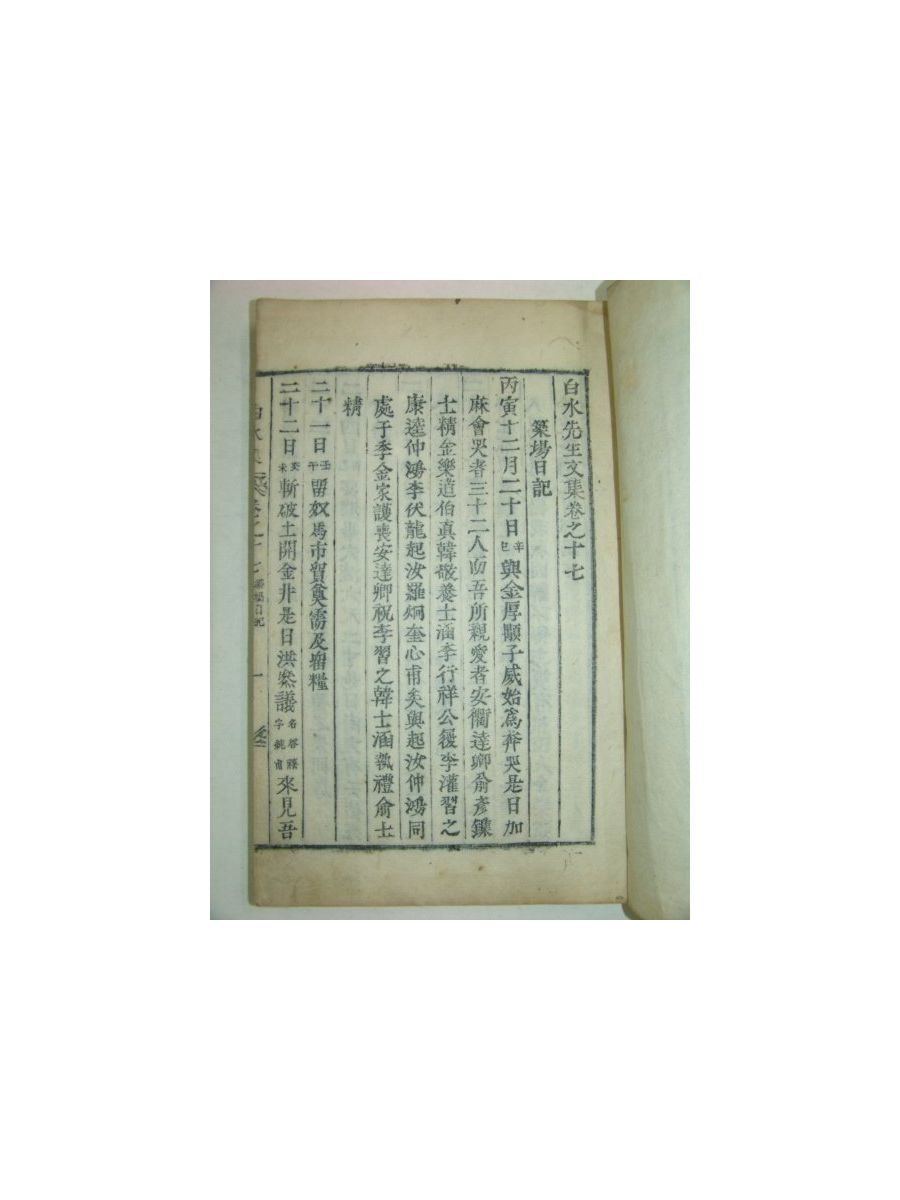 白水先生文集卷之十七
築場日記
丙寅十二月二十日辛巳與金厚顯子威始爲奔哭是日加
麻會哭者三十二人而吾所親愛者安衢達卿兪彦鏶
士精金樂道伯眞韓敬養士涵李行祥公履李灌習之
康逵仲鴻李伏龍起汝羅烱奎心甫矣與起汝仲鴻同
處于季金家護喪安達卿祝李習之韓士涵執禮兪士
精
二十一日壬午留奴馬市貿奠需及留糧
二十二日癸未斬破土開金井是日洪棨議名啓 字 甫來見吾
白水 集卷之十七 築場日記 一